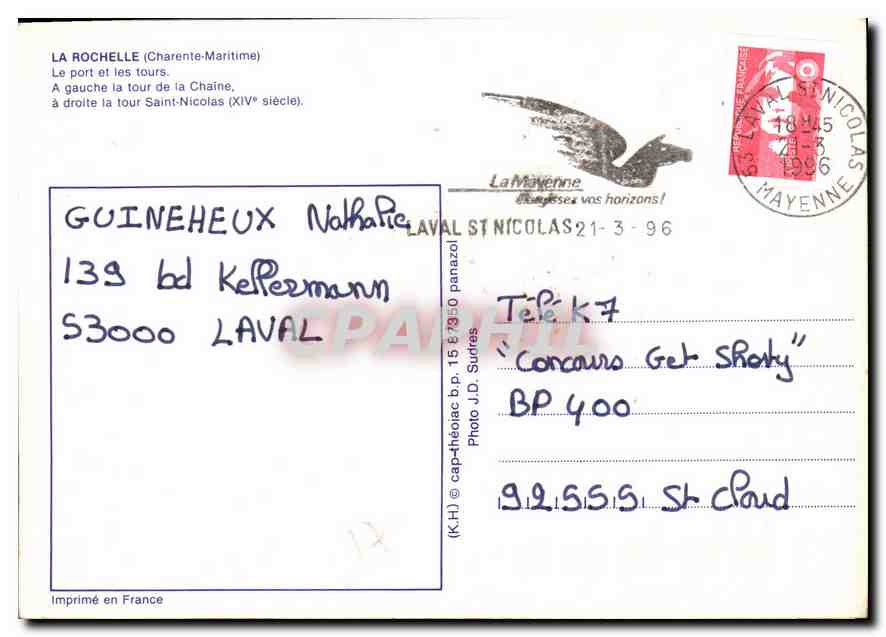 LA ROCHELLE (Charente-Maritime)
Le port et les tours.
A gauche la tour de la Chaîne,
à droite la tour Saint-Nicolas (XIVe siècle).
La Mayenne
vos horizons!
LAVAL ST NICOLAS 21-3-96
REPUBLIQUE FRANÇAISE
53 LAVAL ST NICOLAS
18H45
21-3
1996
MAYENNE
GUINEHEUX Nathalie
139 bd Kellermann
53000 LAVAL
CPAPHIL
(K.H) © cap-théojac b.p. 15 87350 panazol
Photo J.D. Sudres
Télé K7
"Concours Get Shorty"
BP 400
92555 St Cloud
17
Imprimé en France